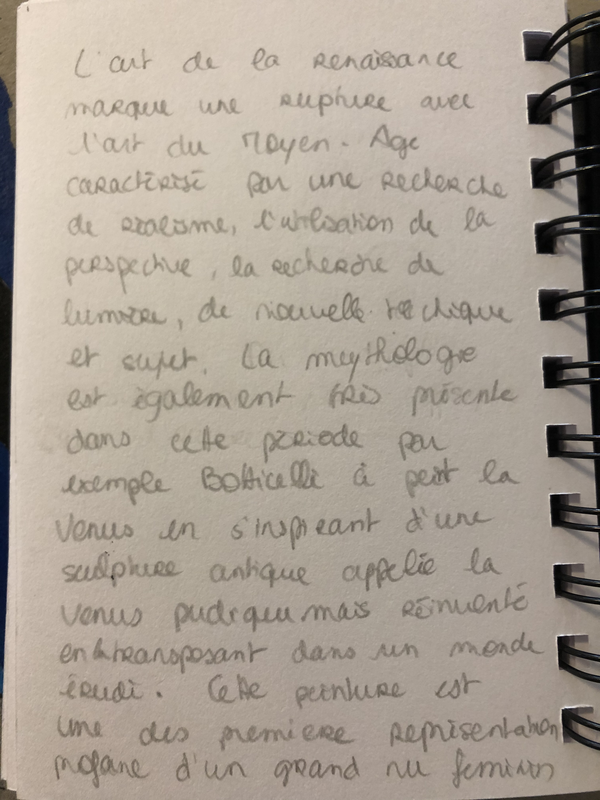 L'art de la renaissance
marque une rupture avec
l'art du Moyen-Age
caractérisé par une recherche
de realisme, l'utilisation de la
perspective, la recherche de
lumière, de nouvelle technique
et sujet. La meythologie
est également très présente
dans cette periode par
exemple Botticelli à peint la
Venus en s'inspireant d'une
sculpture antique appelée la
Venus pudiqueu mais réinventé
en la transposant dans un monde
érudi. Cette peinture est
une des premiere représentation
profane d'un grand nu feminin